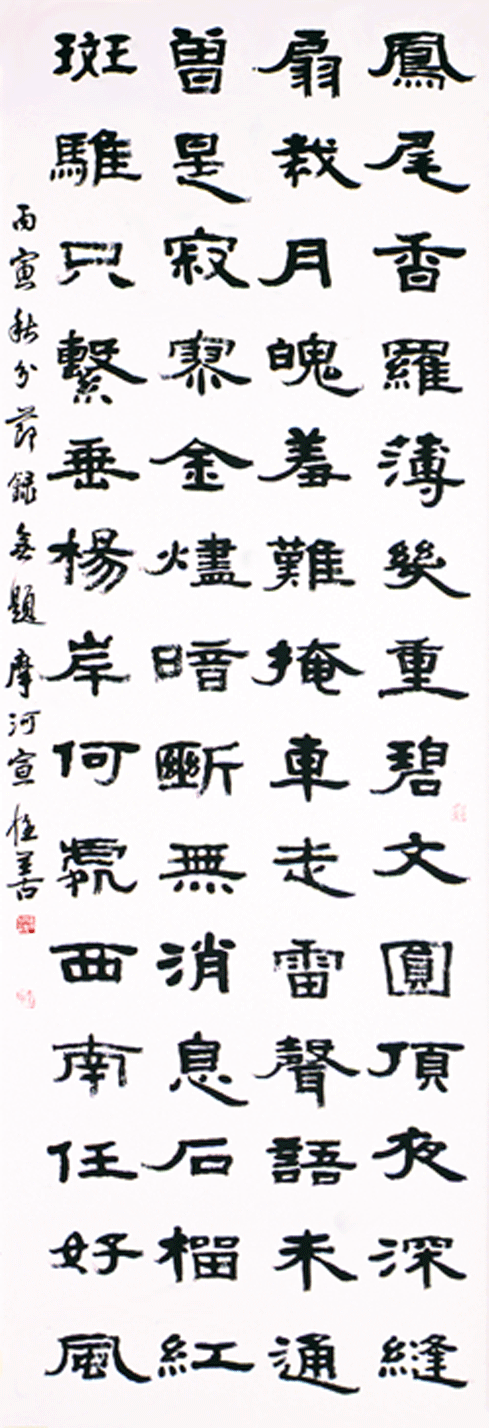 鳳尾香羅薄幾重碧文圓頂夜深縫
扇裁月魄羞難掩車走雷聲語未通
曾是寂寥金燼暗斷無消息石榴紅
斑騅只繫垂楊岸何處西南任好風
丙寅秋分節録無題摩河宣善